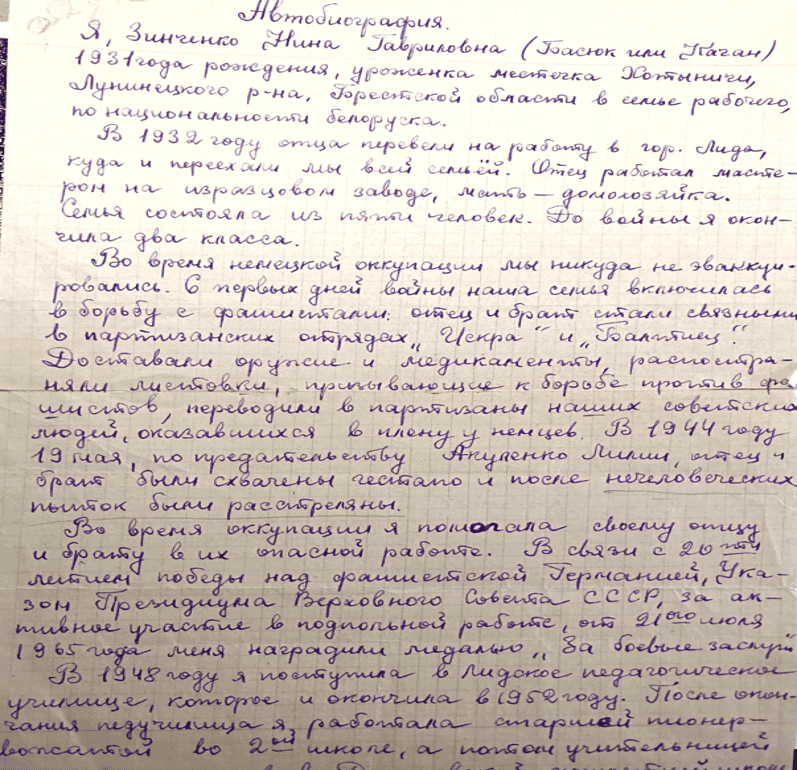 Автобиография.
Я, Зинченко Нина Гавриловна (Басюк или Качан)
1931 года рождения, уроженка местечка Хотыничи,
Лунинецкого р-на, Брестской области в семье рабочего,
по национальности белоруска.
В 1932 году отца перевели на работу в гор. Лида,
куда и переехали мы всей семьёй. Отец работал масте-
ром на изразцовом заводе, мать – домохозяйка.
Семья состояла из пяти человек. До войны я окон-
чила два класса.
Во время немецкой оккупации мы никуда не эвакуи-
ровались. С первых дней войны наша семья включилась
в борьбу с фашистами: отец и брат стали связными
в партизанских отрядах „Искра" и „Балтиец".
Доставали оружие и медикаменты, распостра-
няли листовки, призывающие к борьбе против фа
шистов, переводили в партизаны наших советских
людей, оказавшихся в плену у немцев. В 1944 году
19 мая, по предательству Акуленко Лилии, отец и
брат были схвачены гестапо и после нечеловеческих
пыток были расстреляны.
Во время оккупации я помогала своему отцу
и брату в их опасной работе. В связи с 20 тти
летием победы над фашистской Германией, Ука-
зом Президиума Верховного Совета СССР, за ак-
тивное участие в подпольной работе, от 21 ого июля
1965 года меня наградили медалью „За боевые заслуги"
В 1948 году я поступила в Лидское педагогическое
училище, которое и окончила в 1952 году. После окон-
чания педучилища я работала старшей пионер-
вожатой во 2ой школе, а потом учительницей